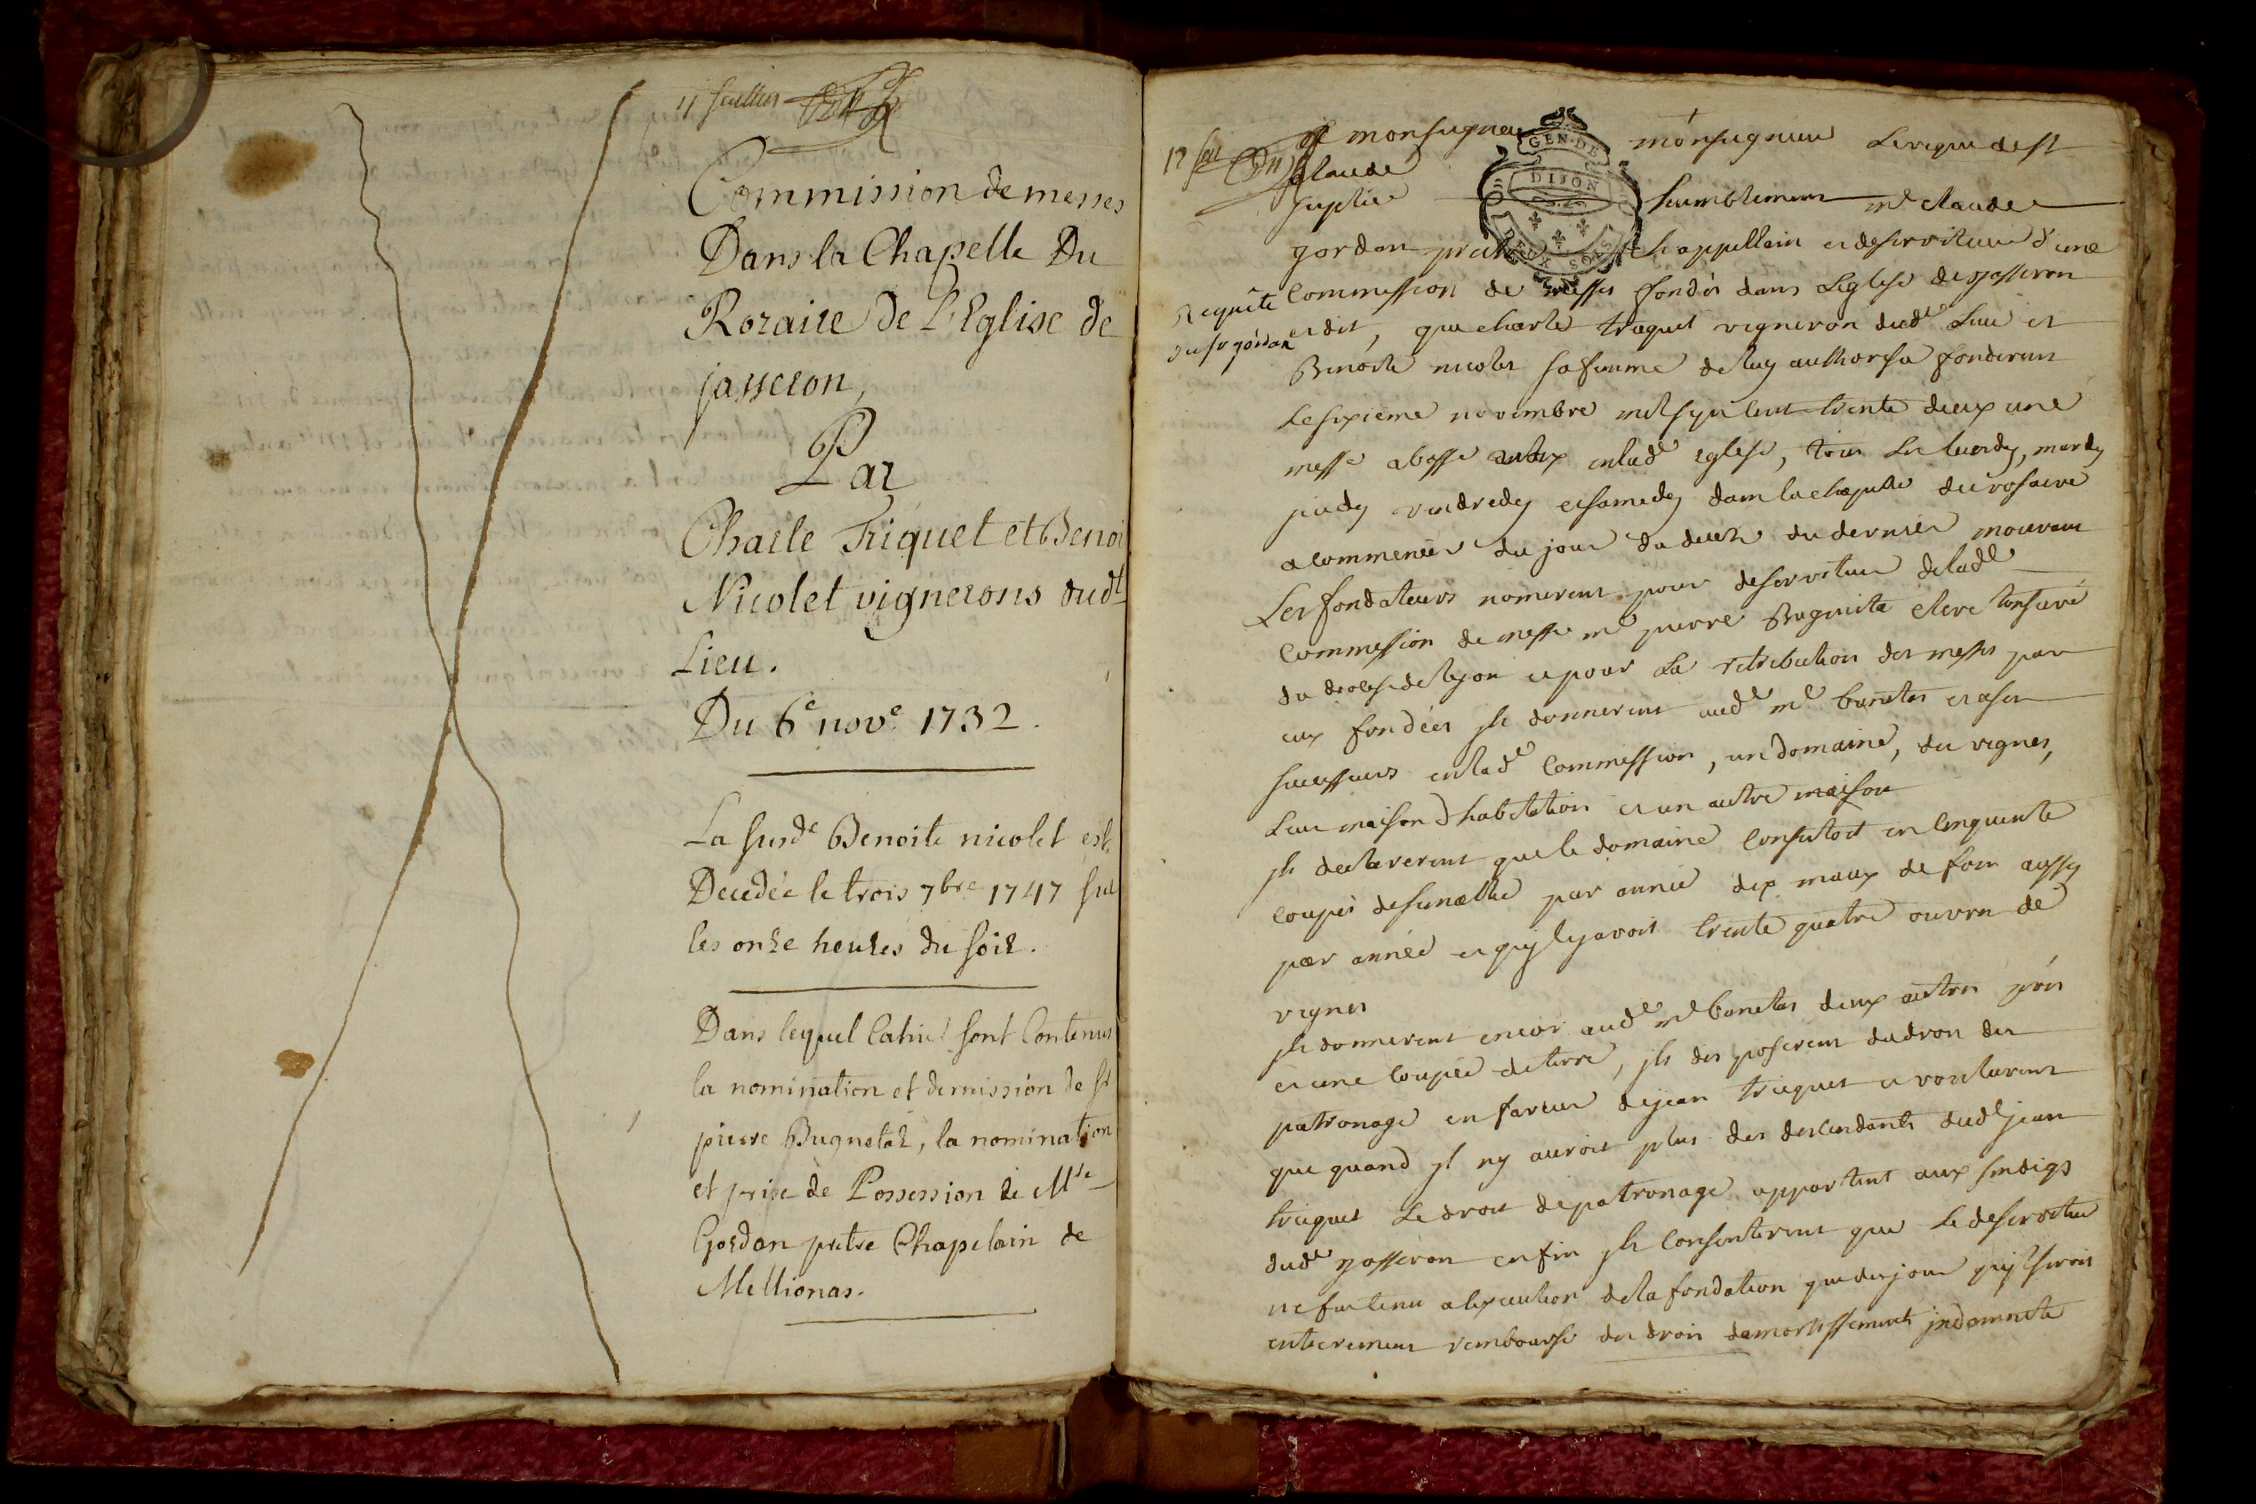 11 feuillet
Commission de messes
Dans la Chapelle Du
Rozaire de L'Eglise de
jasseron,
Par
Charle Triquet et Benoi
Nicolet vignerons dudt
Lieu.
Du 6e nove 1732.
La susde Benoite nicolet est
Decedée le trois 7bre 1747 sur
les onze heures du soir.
Dans lequel Cahier sont Contenus
la nomination et demission de sr
pierre Bugnetas, la nomination
et prise de Possession de Mre
Gordan pretre Chapelain de
Mellionas.
12
A monseigneur monseigneur Leveque de st
Claude
GEN. DE
DIJON
DEUX SOLS
suplie humblement mr claude
gordan pretre chappellain et desserviteur d'une
Requête
du sr gordan
Commission de messes fondés dans Leglise de jasseron
et dit, que charle triquet vigneron dudt Lieu et
Benoite nicolet sa femme de luy authorisa fonderent
Le sixieme novembre mil sept cent trente deux une
messe a basse en lade eglise, tous les lundy, mardy
jeudy vendredy et samedy dans la chapelle du rosaire
a commencer du jour du deces du dernier mourant
Les fondateurs nomerent pour desserviteur de lade
Commission de messe mr pierre Bugnita clerc tonsuré
du diocese de lyon et pour La retribution des messes par
eux fondées ils donnerent audt mr et a ses
successeurs en lade Commission, un domaine, des vignes,
Leur maison d'habitation et un autre maison
ils declarerent que le domaine Consistoit en Cinquante
coupes de semaille par année dix maux de foin aussy
par année et quil y avoit trente quatre ouvrées de
vignes
ils donnerent encor audt mr deux autres prés
et une coupée de terre, ils disposerent du droit de
patronage en faveur de jean triquet et voulurent
que quand il ny auroit plus des descendants dudt jean
triquet Le droit de patronage appartent aux sindigs
dudt jasseron enfin ils Consenterent que Le desserviteur
ne fut tenu a lexecution de la fondation que du jour quil seroit
entierement rembourse des droits damortissement indamnite